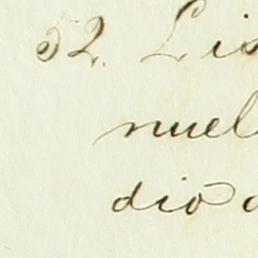 52. Lis
nuel
dio